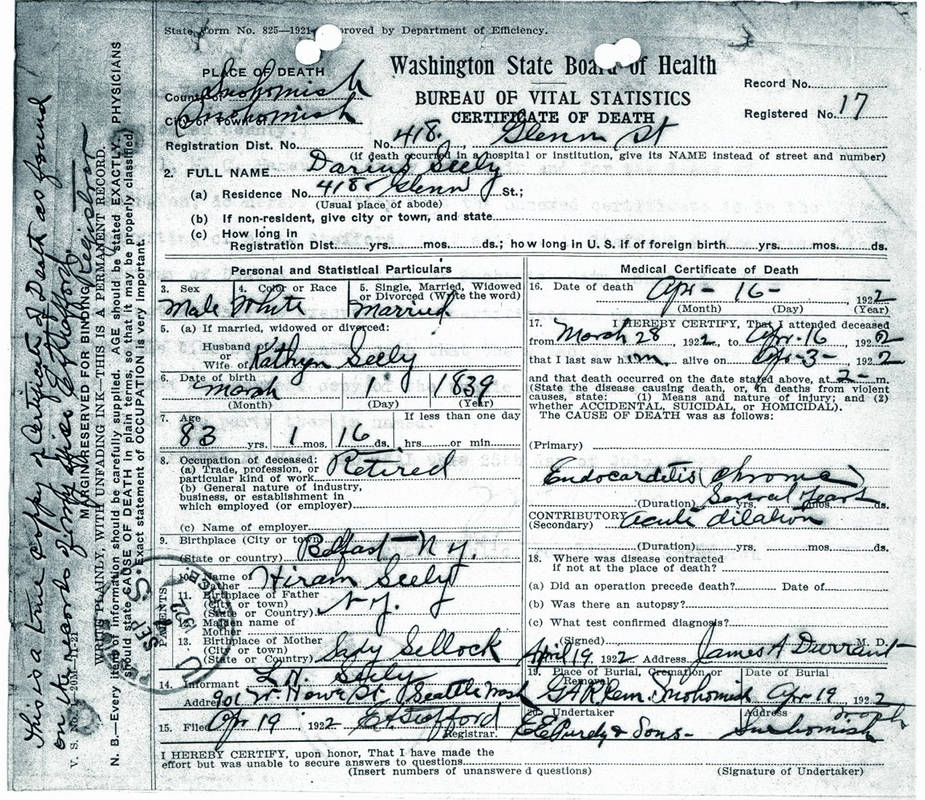 State Form No. 825—1921 Approved by Department of Efficiency.
PLACE OF DEATH
Washington State Board of Health
BUREAU OF VITAL STATISTICS
CERTIFICATE OF DEATH
Record No.
Registered No. 17
County of Snohomish
City or Town of Snohomish
Registration Dist. No. No. 418. Glenn St
(if death occurred in a hospital or institution, give its NAME instead of street and number)
2. FULL NAME Darius Seely
(a) Residence No. 418 Glenn St.;
(Usual place of abode)
(b) If non-resident, give city or town, and state
(c) How long in
Registration Dist. yrs. mos. ds.; how long in U. S. if of foreign birth yrs. mos. ds.
Personal and Statistical Particulars
3. Sex 4. Color or Race 5. Single, Married, Widowed
or Divorced (Write the word)
Male White Married
5. (a) If married, widowed or divorced:
Husband of
or
Wife of Kathryn Seely
6. Date of birth
March 1 1839
(Month) (Day) (Year)
7. Age If less than one day
83 yrs. 1 mos. 16 ds. hrs. or min.
8. Occupation of deceased:
(a) Trade, profession, or
particular kind of work Retired
(b) General nature of industry,
business, or establishment in
which employed (or employer)
(c) Name of employer
9. Birthplace (City or town)
(State or country) Belfast N Y.
PARENTS
10. Name of
Father Hiram Seely
11. Birthplace of Father
(City or town)
(State or Country) N. Y.
12. Maiden name of
Mother
13. Birthplace of Mother
(City or town)
(State or Country) Sellock
14. Informant Seely
Address 901 W. Howe St. Seattle Wash
15. Filed Apr 19 1922 E. A. Stafford
Registrar.
Medical Certificate of Death
16. Date of death Apr- 16- 1922
(Month) (Day) (Year)
17. I HEREBY CERTIFY, That I attended deceased
from March 28 1922, to Apr. 16 1922
that I last saw him alive on Apr-3- 1922
and that death occurred on the date stated above, at 2- m.
(State the disease causing death, or, in deaths from violent
causes, state: (1) Means and nature of injury; and (2)
whether ACCIDENTAL, SUICIDAL, or HOMICIDAL).
The CAUSE OF DEATH was as follows:
(Primary)
Endocarditis (chronic)
(Duration) Several Years yrs. mos. ds.
CONTRIBUTORY acute dilation
(Secondary)
(Duration) yrs. mos. ds.
18. Where was disease contracted
if not at the place of death?
(a) Did an operation precede death? Date of
(b) Was there an autopsy?
(c) What test confirmed diagnosis?
(Signed) James A Durrant M. D.
April 19 1922 Address
19. Place of Burial, Cremation Date of Burial
Removal
GAR Cem. Snohomish Apr 19 1922
20. Undertaker Address
E E Purdy & Sons- Snohomish
I HEREBY CERTIFY, upon honor, That I have made the
effort but was unable to secure answers to questions
(Insert numbers of unanswered questions) (Signature of Undertaker)
This is a true copy of Certificate of Death as found
on the records of my office. E A Stafford Registrar
V. S. No.
MARGIN RESERVED FOR BINDING
WRITE PLAINLY, WITH UNFADING INK—THIS IS A PERMANENT RECORD.
N. B.—Every item of information should be carefully supplied. AGE should be stated EXACTLY. PHYSICIANS
should state CAUSE OF DEATH in plain terms, so that it may be properly classified.
Exact statement of OCCUPATION is very important.